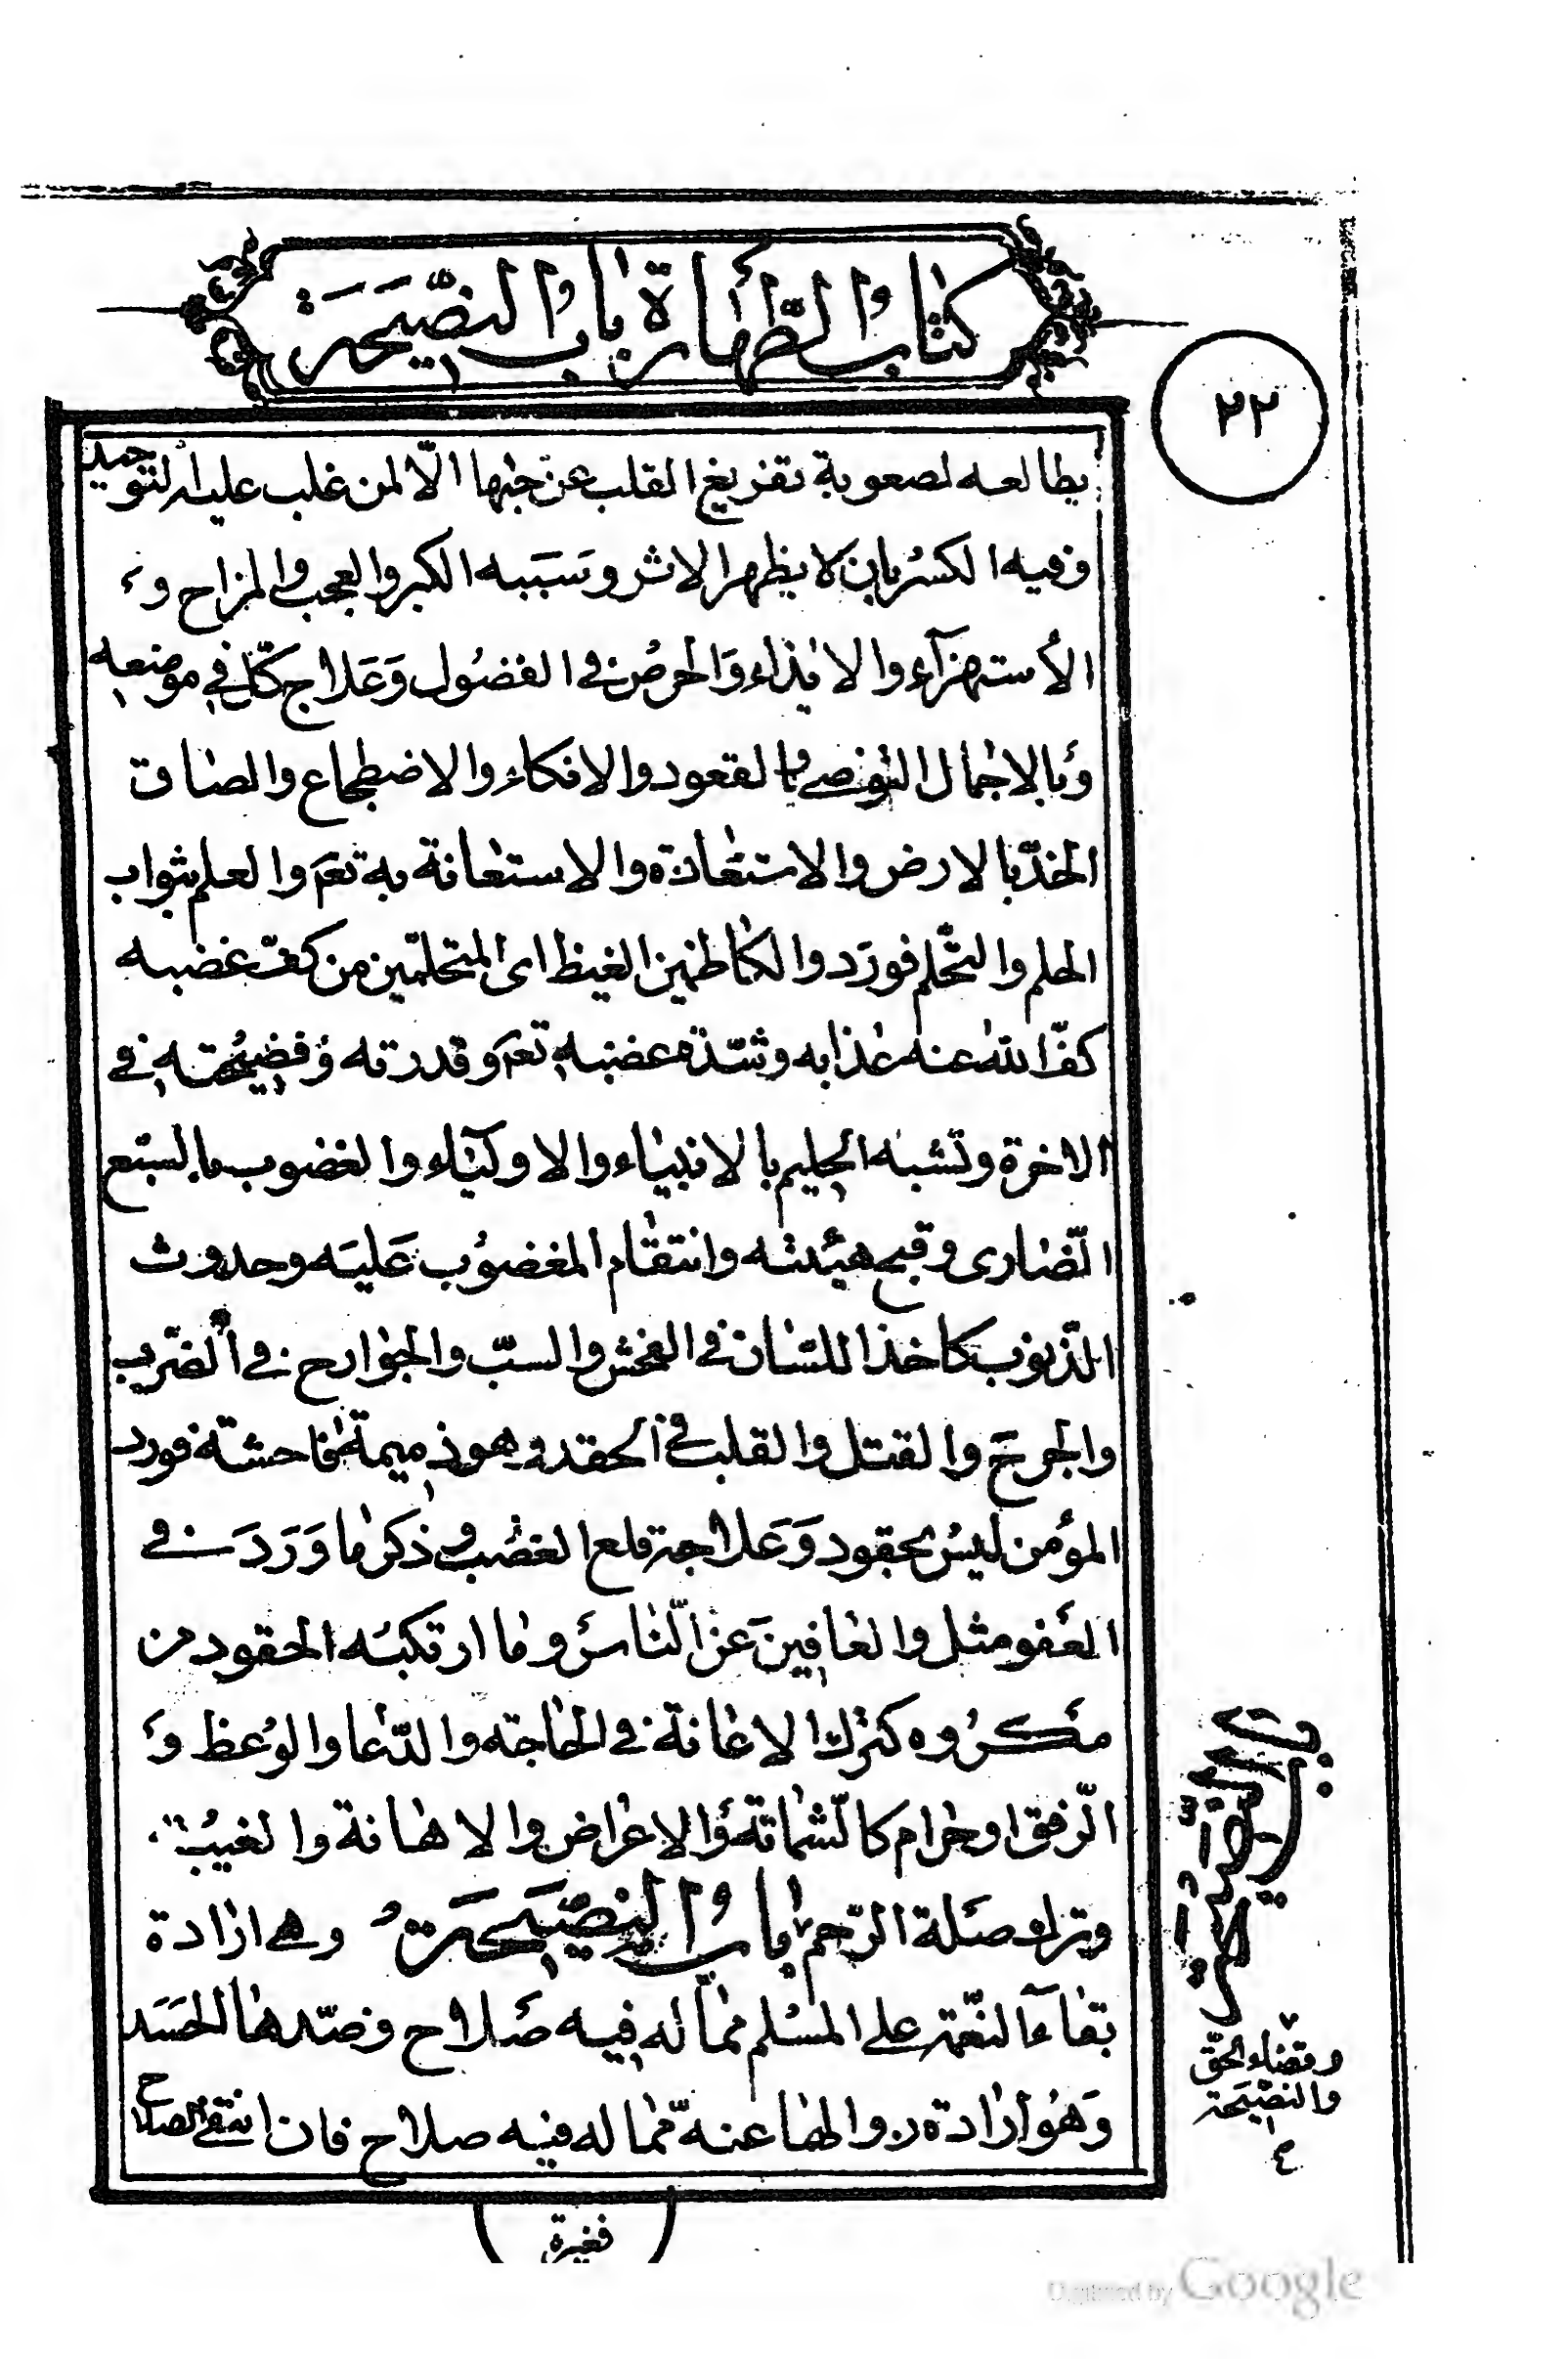 كتاب الطهارة باب النصيحة
٢٢
يطالعه لصعوبة تفريغ القلب عن حبها الّا لمن غلب عليه التوحيد
وفيه الكسر بان لا يظهر الاثر وسببه الكبر والعجب والمزاح و
الأستهزآء والايذاء والحرص في الفضول وعلاج كلّ في موضعه
وبالاجمال التوضي والقعود والاتكاء والاضطجاع والصاق
الخدّ بالارض والاستعاذة والاستعانة به تعم والعلم بثواب
الحلم والتحلّم فورد والكاظمين الغيظ اى المتحلّمين من كفّ غضبه
كفّ الله عنه عذابه وشدّة غضبه تعم وقدرته وفضيحته في
الاخرة وتشبه الحليم بالانبياء والاولياء والغضوب بالسبع
الضّارى وقبح هيئته وانتقام المغضوب عليه وحدوث
الذنوب كاخذ اللسان في الفحش والسبّ والجوارح في الضّرب
والجرح والقتل والقلب في الحقد وهو ذميمة فاحشة فورد
المؤمن ليس بحقود وعلاجه قلع الغضب وذكر ما ورد في
العفو مثل والعافين عن النّاس وما ارتكبه الحقود من
مكروه كترك الاعانة في الحاجة والدّعا والوعظ و
الرّفق او حرام كالشّماتة والاعراض والاهانة والغيبة
وترك صلة الرّحم باب النصيحة وهي ارادة
بقاء النعمة على المسلم ممّا له فيه صلاح وضدّها الحسد
وهو ارادة زوالها عنه ممّا له فيه صلاح فان انتفى الصلاح
وقضاء الحقّ
والنصيحة
(فغيرة)
Digitized by Google